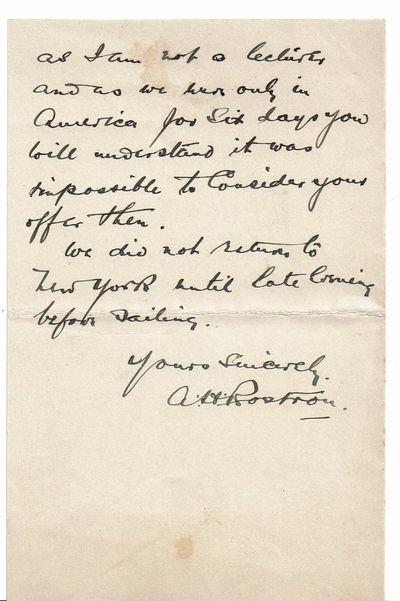 as I am not a lecturer
and as we were only in
America for six days you
will understand it was
impossible to consider your
offer then.
We did not return to
New York until late evening
before sailing.
Yours Sincerely.
A.H. Rostron.